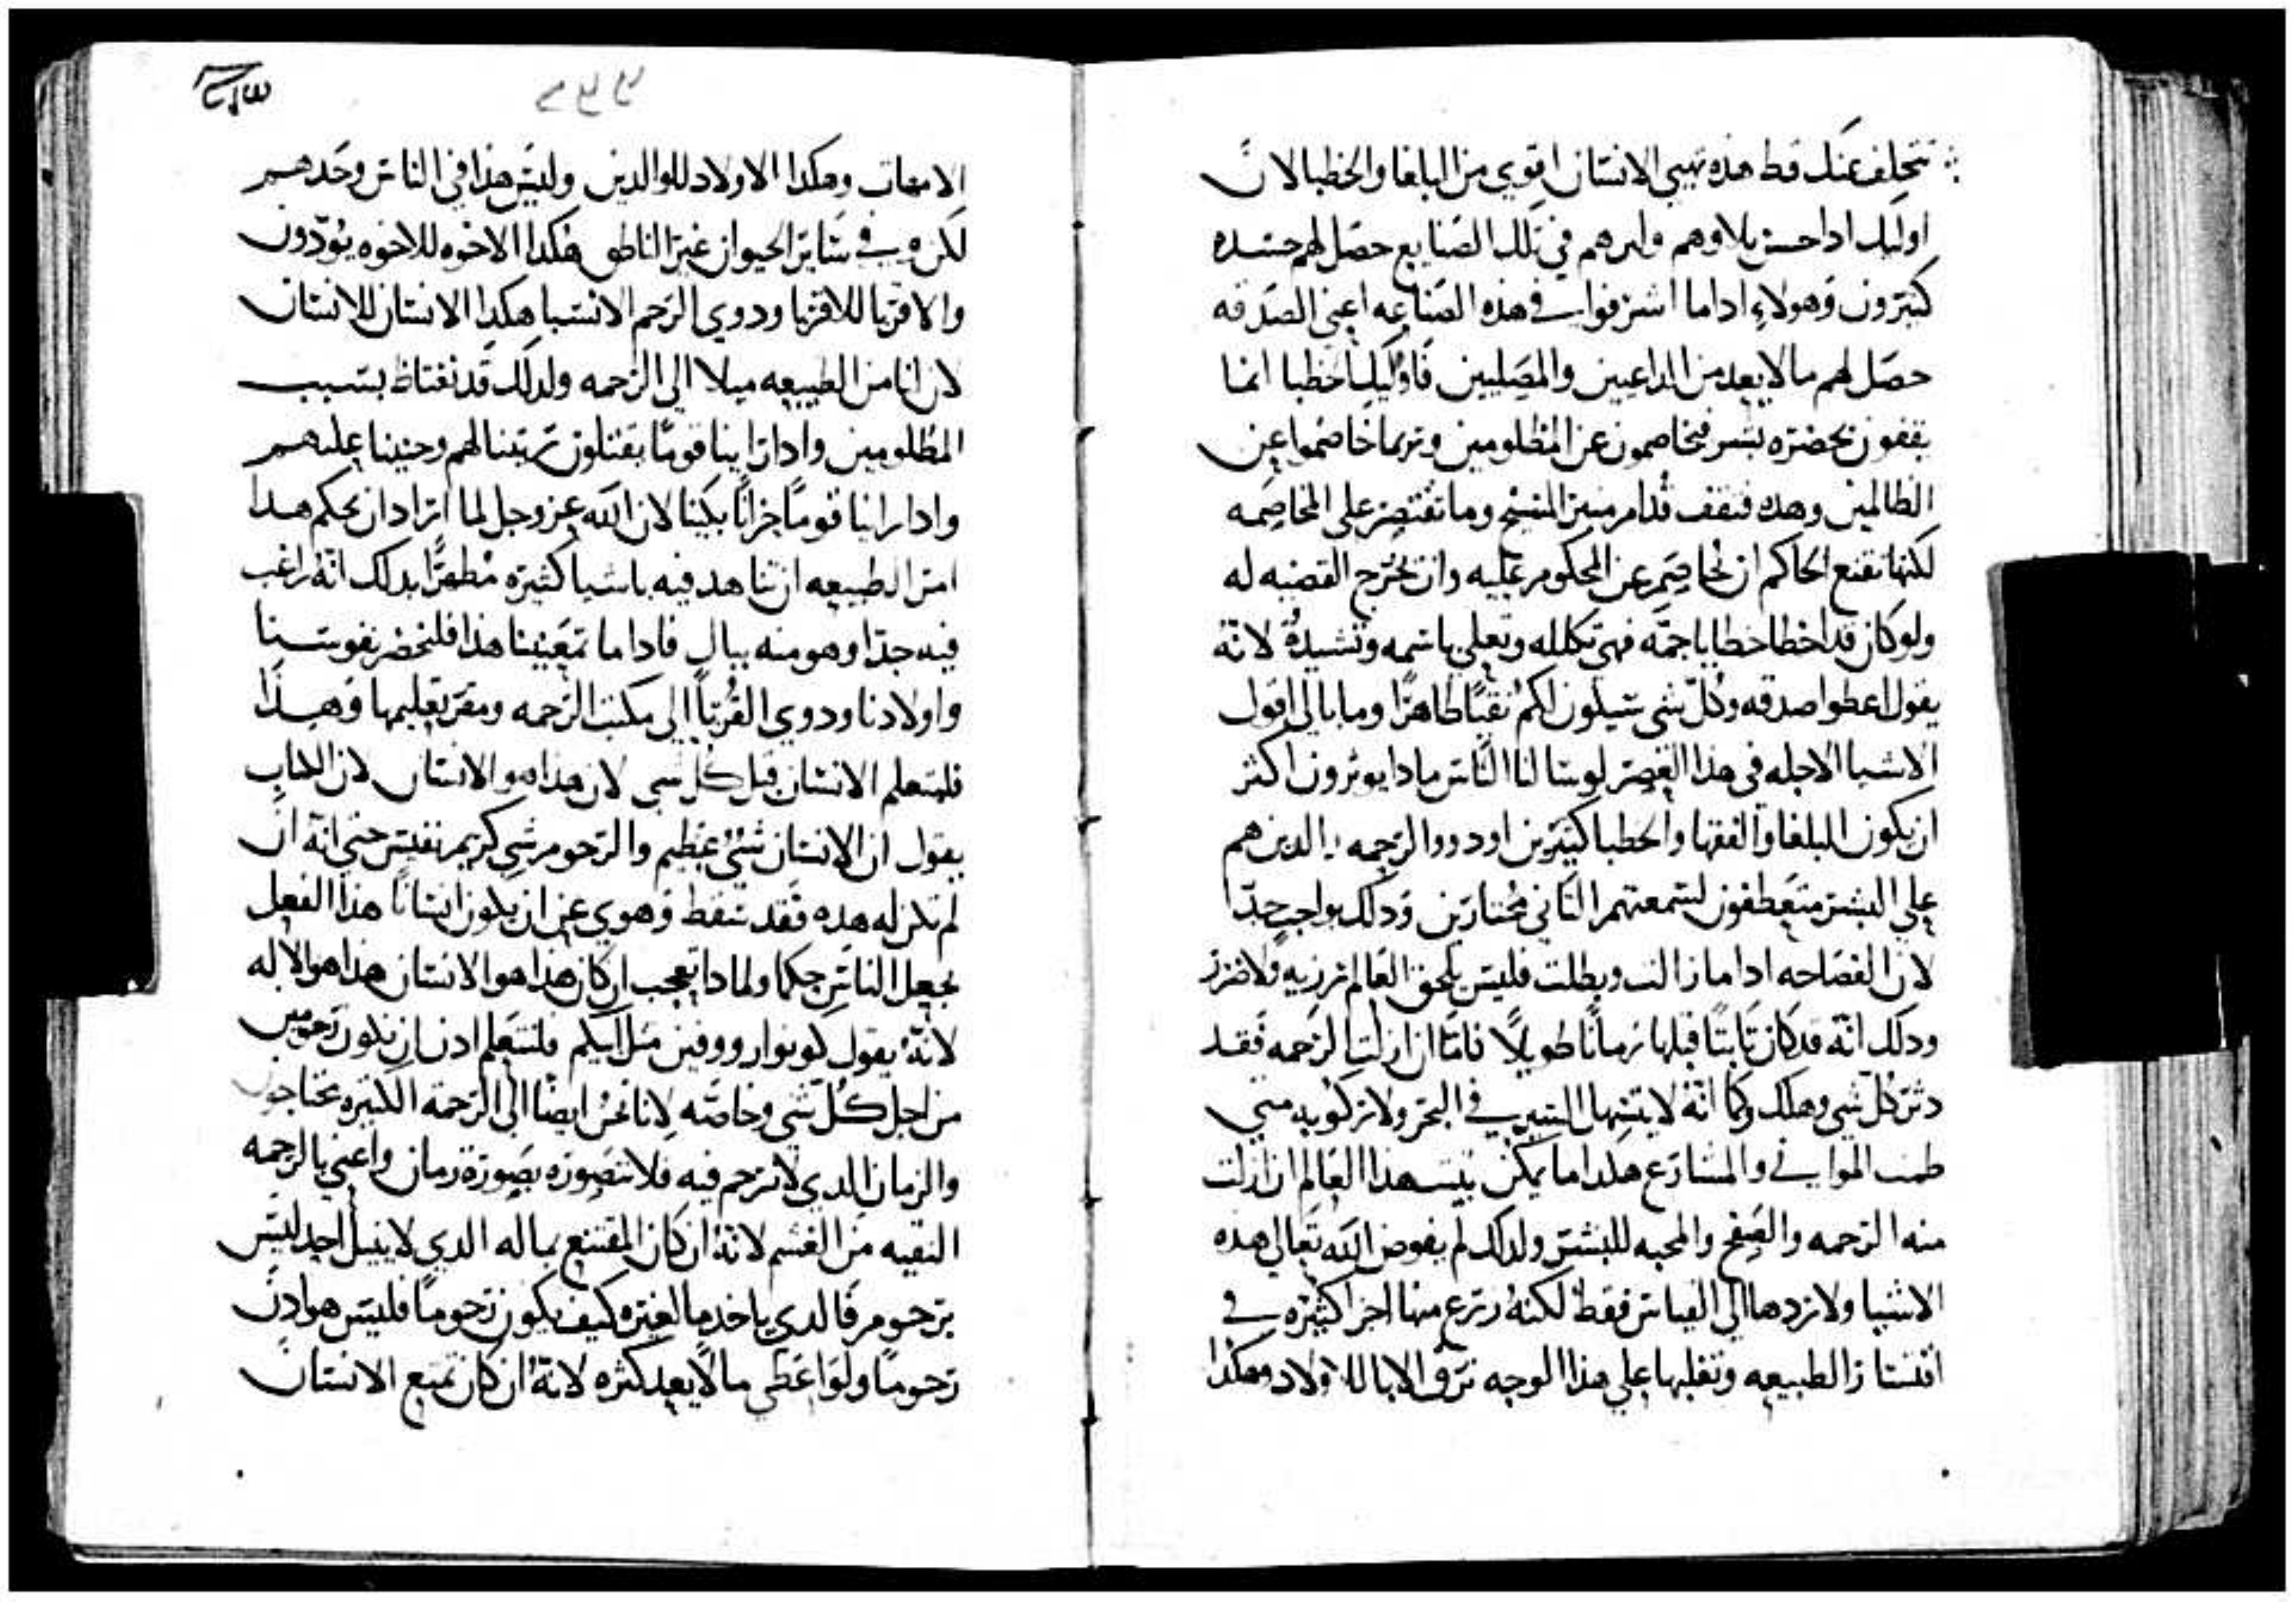 تتخلف عنك قط هذه تهيي الانسان اقوي من البلغا والخطبا لان
اوليك ادا حسن بلاوهم وامرهم في تلك الصنايع حصل لهم حسده
كثيرون وهولاء ادا ما اشرفوا في هذه الصناعه اعني الصدقه
حصل لهم ما لا يعد من الداعيين والمصليين فاوليك الخطبا انما
يقفون بحضرة بشر فيخاصمون عن المظلومين وربما خاصموا عن
الظالمين وهذه فتقف قدام منبر المسيح وما تقتصر على المخاصمه
لكنها تقنع الحاكم ان يخاصم عن المحكوم عليه وان يخرج القضيه له
ولو كان قد اخطا خطايا جمه فهي تكلله وتعلي باسمه وتشيده لانه
يقول اعطوا صدقه وكل شي سيكون لكم نقيا طاهرا وما بالي اقول
الاشيا الاجله في هذا العصر لو سالنا الناس مادا يوثرون اكثر
ان يكون البلغا والفقها والخطبا كثيرين او دووا الرحمه الدين هم
علي البشر متعطفون لسمعتهم الثاني مختارين ودلك بواجب جدا
لان الفصاحه ادا ما زالت وبطلت فليس يلحق العالم رزيه ولا ضرر
ودلك انه قد كان ثابتا قبلها زمانا طويلا فاما ان ازلت الرحمه فقد
دثر كل شي وهلك وكما انه لا يتهيا السير في البحر ولا ركوبه متي
طمت المواني والمشارع هكدا ما يمكن يثبت هذا العالم ان ازلت
منه الرحمه والصفح والمحبه للبشر ولدلك لم يفوض الله تعالي هذه
الاشيا ولا زدها الي القياس فقط لكنه زرع منها اجزا كثيره في
اقتسار الطبيعه وتقلبها علي هذا الوجه ترق الابا للاولاد وهكدا
الامهات وهكدا الاولاد للوالدين وليس هذا في الناس وحدهم
لكن وفي ساير الحيوان غير الناطق هكدا الاخوه للاخوه يودون
والاقربا للاقربا ودوي الرحم الانسبا هكدا الانسان للانسان
لان لنا من الطبيعه ميلا الي الرحمه ولدلك قد نغتاظ بسبب
المظلومين وادا راينا قوما يقتلون رتينا لهم وحنينا عليهم
وادا راينا قوما حزانا بكينا لان الله عز وجل لما اراد ان يحكم هدا
امر الطبيعه ان تساهد فيه باشيا كثيره مظهرا بدلك انه راغب
فيه جدا وهو منه ببال فادا ما تمعنينا هذا فلنحضر نفوسنا
واولادنا ودوي القربا الي مكتب الرحمه ومقر تعليمها وهذا
فليتعلم الانسان قبل كل شي لان هذا هو الانسان لان الكتاب
يقول ان الانسان شي عظيم والرحوم شي كريم نفيس حتي انه ان
لم تكن له هده فقد سقط وهوي عن ان يكون انسانا هذا الفعل
يجعل الناس حكما ولمادا تعجب ان كان هذا هو الانسان هذا هو الاله
لانه يقول كونوا رووفين مثل ابيكم فلنتعلم ادن ان نكون رحومين
من اجل كل شي وخاصه لاننا نحن ايضا الي الرحمه الكثيره محتاجون
والزمان الدي لا نرحم فيه فلا نتصوره بصورة زمان واعني بالرحمه
النقيه من الغشم لانه ان كان المقتنع بماله الدي لا ينيل احد ليس
برحوم فالدي ياخد ما لغيره كيف يكون رحوما فليس هو ادن
رحوما ولو اعطي ما لا يعد كثره لانه ان كان تمتع الانسان